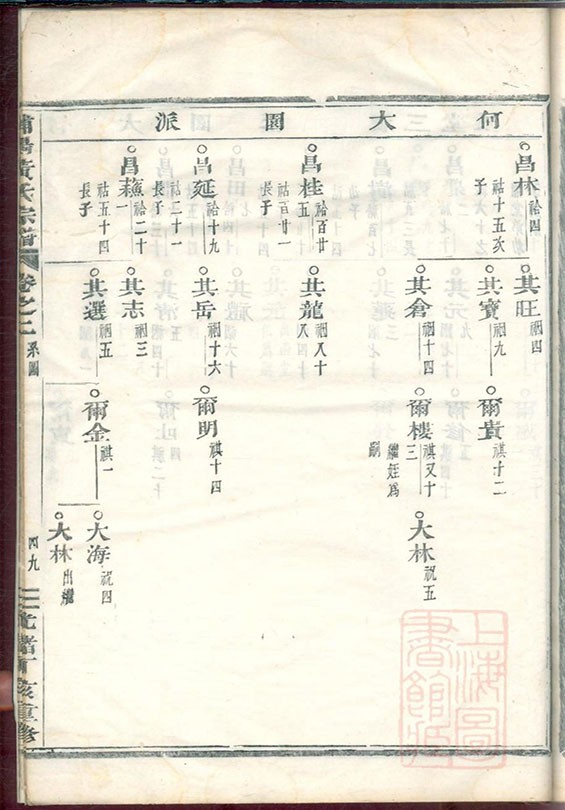 何大園派
昌林 祫四
祜十五次
子
其旺 祻四
其寶 祻九
爾貴 祺十二
其倉 祻十四
爾樓 祺又十
三
繼姪爲
嗣
大林 祝五
昌桂 祫百廿
五
祜百廿一
長子
其龍 祻八十
四
昌延 祫十九
祜二十一
長子
其岳 祻十六
爾明 祺十四
昌蕪 祫二十
祜五十四
長子
其志 祻三
其選 祻五
爾金 祺一
大海 祝四
大林 出繼
黃氏宗譜
卷之二
系圖
四九
丁亥重修
上海圖
書館藏